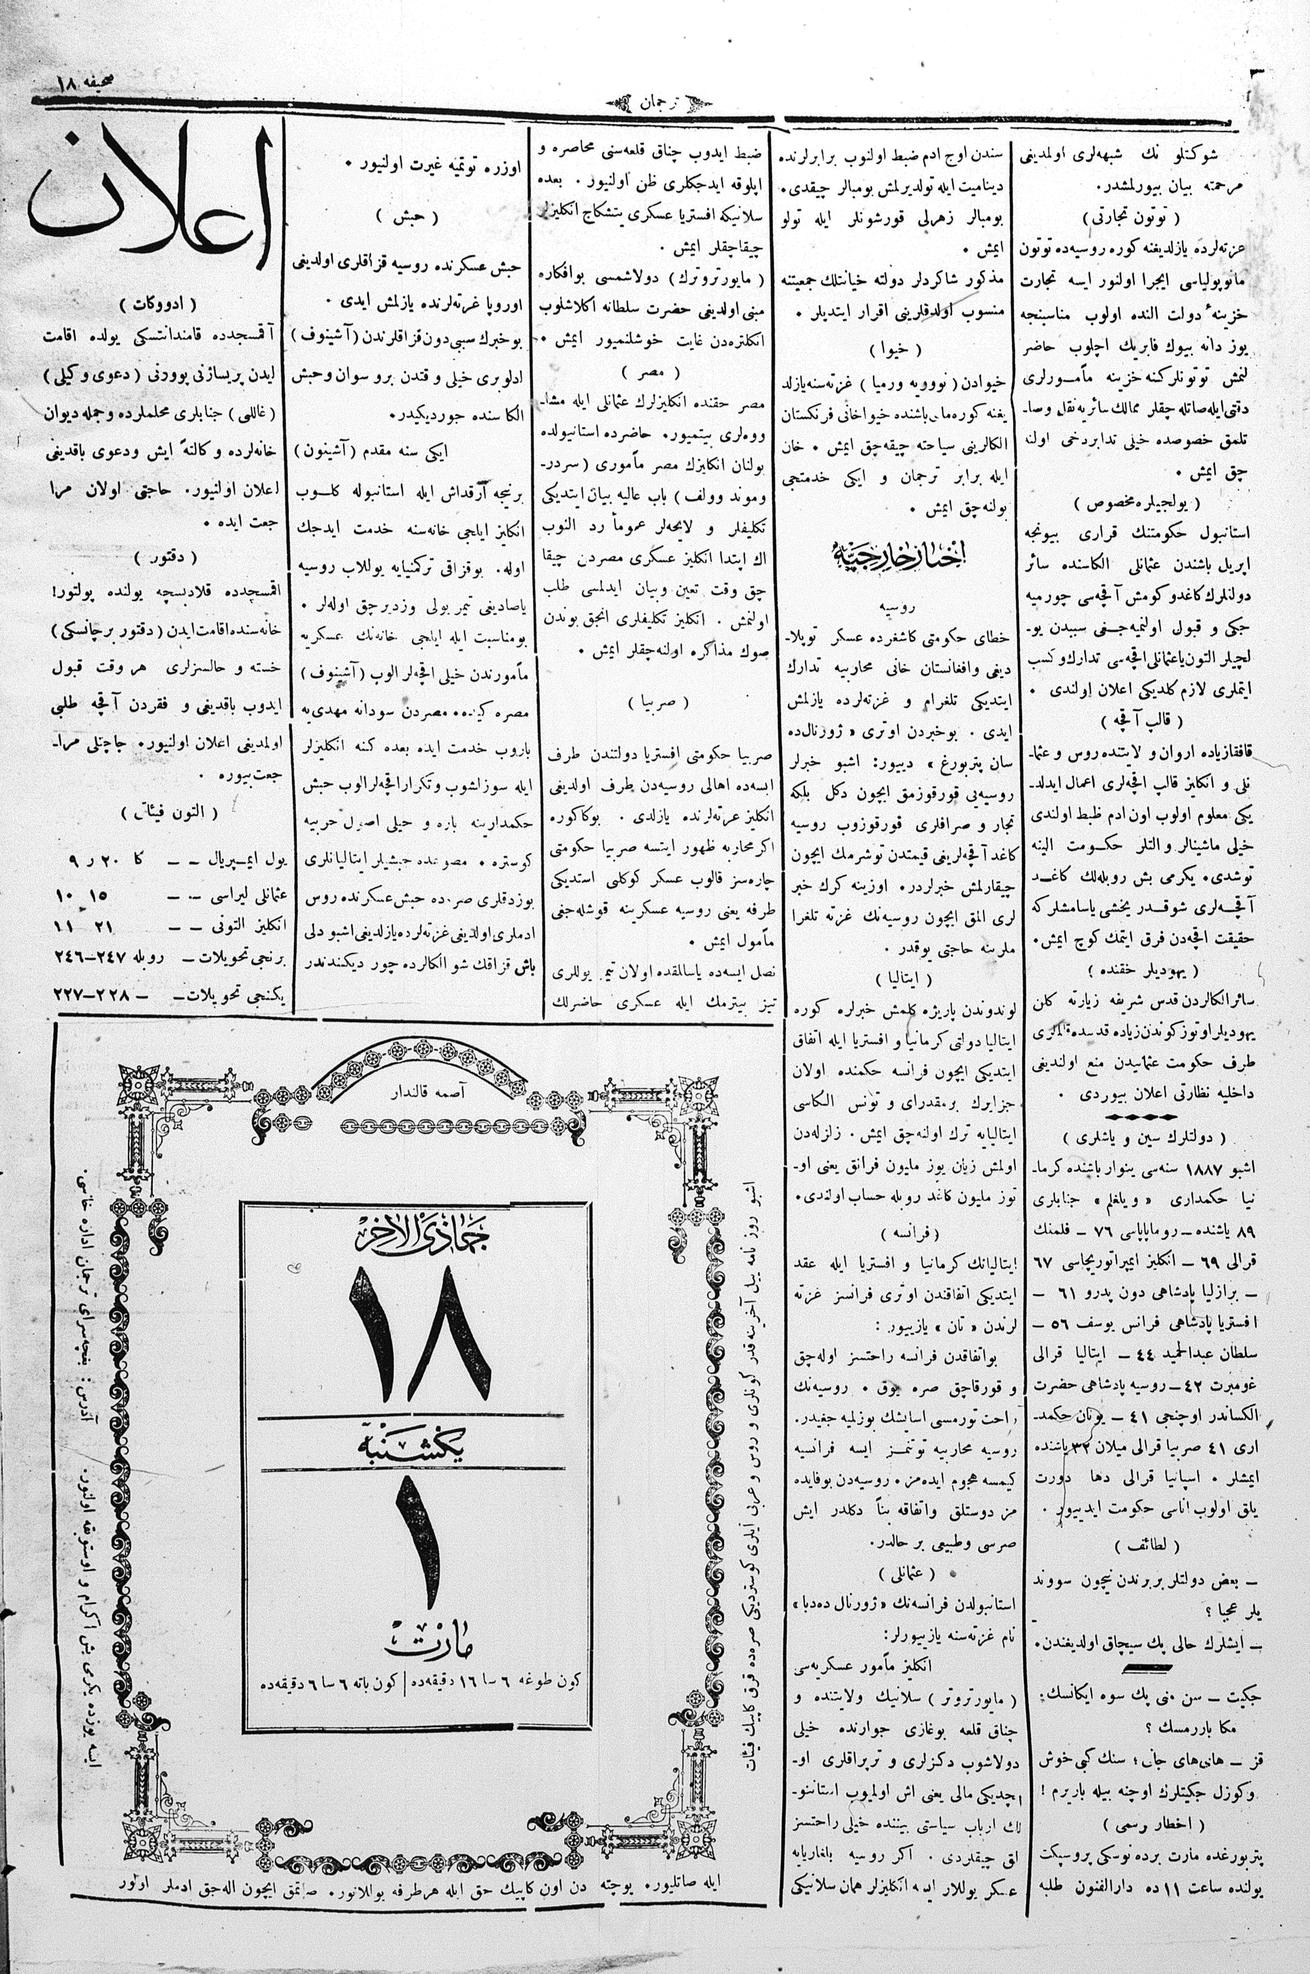 صحیفه ۱۸
ترجمان
شوکتلو نك شبهه‌لری اولمدیغی
مرحمته بیان بیورلمشدر.
( توتون تجارتی )
غزته‌لرده یازلدیغنه کوره روسیه‌ده توتون
مانوپولیاسی ایجرا اولنور ایسه تجارت
خزینهٔ دولت النده اولوب مناسبنجه
یوز دانه بیوك فابریك اچلوب حاضر
لنمش توتونلرکنه خزینه مأمورلری
دقتی ایله صاتله چقلر ممالك سائریه نقل وصا-
تلمق خصوصده خیلی تدابردخی اولنه
چق ایمش .
( یولجیلره مخصوص )
استانبول حکومتنك قراری بیونجه
اپریل باشندن عثمانلی الکاسنده سائر
دولتلرك کاغدو کومش آقچه‌سی چورمیه
جکی و قبول اولنمیه‌جغی سببدن یو-
لجیلر التون یاعثمانلی اقچه‌سی تدارك وکسب
ایتملری لازم کلدیکی اعلان اولندی .
( قالپ آقچه )
قافقازیاده اروان و لایتنده روس و عثما-
نلی و انکلیز قالپ اقچه‌لری اعمال ایدلد-
یکی معلوم اولوب اون ادم ظبط اولندی
خیلی ماشینالر و التلر حکومت الینه
توشدی. یکرمی بش روبله‌لك کاغد
آقچه‌لری شوقدر یخشی یاسامشلرکه
حقیقت اقچه‌دن فرق ایتمك کوچ ایمش.
( یهودیلر حقنده )
سائر الکالردن قدس شریفه زیارته کلن
یهودیلر اوتوز کوندن زیاده قدسده قالملری
طرف حکومت عثمانیدن منع اولندیغی
داخلیه نظارتی اعلان بیوردی .
( دولتلرك سین و یاشلری )
اشبو ۱۸۸۷ سنه‌سی ینوار باشنده کرما-
نیا حکمداری « ویلغلم » جنابلری
۸۹ یاشنده – روما پاپاسی ۷۶ – فلمنك
قرالی ۶۹ – انکلیز ایمپراتوریچاسی ۶۷
– برازلیا پادشاهی دون پدرو ۶۱ –
افستریا پادشاهی فرانس یوسف ۵۶ –
سلطان عبدالحمید ۴۴ – ایتالیا قرالی
غومبرت ۴۲ – روسیه پادشاهی حضرت
الکساندر اوچنجی ۴۱ – یونان حکمد-
اری ۴۱ صربیا قرالی میلان ۳۲ یاشنده
ایمشلر . اسپانیا قرالی دها دورت
یلق اولوب اناسی حکومت ایدییور .
( لطائف )
– بعض دولتلر بربرندن نیچون سووند
یلر عجبا ؟
– ایشلرك حالی پك سیچاق اولدیغندن.
جکیت – سن منی پك سوه ایکانسك:
مکا بارر‌مسك ؟
قز – های‌های جانی ؛ سنك کبی خوش
وکوزل جکیتلرك اوچنه بیله باریرم !
( اخطار رسمی )
پتربورغده مارت برده نوسکی پروسپکت
یولنده ساعت ۱۱ ده دارالفنون طلبه
سندن اوچ ادم ضبط اولنوب برابرلرنده
دینامیت ایله تولدیرلمش بومبالر چیقدی.
بومبالر زهرلی قورشونلر ایله تولو
ایمش .
مذکور شاکردلر دولته خیانتلك جمعیتنه
منسوب اولدقلرینی اقرار ایتدیلر .
( خیوا )
خیوادن ( نوویه ورمیا ) غزته‌سنه یازلد
یغنه کوره مای باشنده خیواخانی فرنکستان
الکالرینی سیاحته چیقه‌چق ایمش . خان
ایله برابر ترجمان و ایکی خدمتجی
بولنه‌چق ایمش .
اخبار خارجیه
روسیه
خطای حکومتی کاشغرده عسکر توپلا-
دیغی وافغانستان خانی محاربیه تدارك
ایتدیکی تلغرام و غزته‌لرده یازلمش
ایدی . بوخبردن اوتری « ژورنال ده
سان پتربورغ » دییور: اشبو خبرلر
روسیه‌یی قورقوزمق ایچون دکل بلکه
تجار و صرافلری قورقوزوب روسیه
کاغد آقچه‌لریغی قیمتدن توشرمك ایچون
چیقارلمش خبرلردر. اوزینه کرك خبر
لری المق ایچون روسیه‌نك غزته تلغرا
ملرینه حاجتی یوقدر.
( ایتالیا )
لوندوندن پاریژه کلمش خبرلره کوره
ایتالیا دولتی کرمانیا و افستریا ایله اتفاق
ایتدیکی ایچون فرانسه حکمنده اولان
جزایرك برمقدرای و تونس الکاسی
ایتالیایه ترك اولنه‌چق ایمش . زلزله‌دن
اولمش زیان یوز ملیون فرانق یعنی او-
توز ملیون کاغد روبله حساب اولندی.
( فرانسه )
ایتالیانك کرمانیا و افستریا ایله عقد
ایتدیکی اتفاقندن اوتری فرانسز غزته
لرندن « تان » یازییور :
بواتفاقدن فرانسه راحتسز اوله‌چق
و قورقاچق صره یوق . روسیه‌نك
راحت تورمسی اسایشك بوزلمیه جغیدر.
روسیه محاربیه توتنمز ایسه فرانسیه
کیمسه هجوم ایده‌مز. روسیه‌دن بوفایده
مز دوستلق واتفاقه بناً دکلدر ایش
صرسی وطبیعی بر حالدر.
( عثمانلی )
استانبولدن فرانسه‌نك « ژورنال ده‌دبا »
نام غزته‌سنه یازییورلر:
انکلیز مأمور عسکریه‌سی
( مایورتروتر ) سلانیك ولایتنده و
چناق قلعه بوغازی جوارنده خیلی
دولاشوب دکزلری و تریراقلری او-
لچدیکی مالی یعنی اش اولمیوب استانبو-
لك ارباب سیاستی بیننده خیلی راحتسز
لق چیقلردی . اکر روسیه بلغاریایه
عسکر یوللار ایسه انکلیزلر همان سلانیکی
ضبط ایدوب چناق قلعه‌سنی محاصره و
اپلوقه ایدجکلری ظن اولنیور . بعده
سلانیکه افستریا عسکری یتشکاج انکلیزلر
چیقاچقلر ایمش .
( مایورتروترك ) دولاشمسی بوافکاره
مبنی اولدیغی حضرت سلطانه اکلاشلوب
انکلتره‌دن غایت خوشلنمیور ایمش .
( مصر )
مصر حقنده انکلیزلرك عثمانلی ایله مشا-
وره‌لری بیتمیور. حاضرده استانبولده
بولنان انکلیزك مصر مأموری ( سردر-
وموند وولف ) باب عالیه بیان ایتدیکی
تکلیفلر و لایحه‌لر عموماً رد النوب
اك ابتدا انکلیز عسکری مصردن چیقا
چق وقت تعین وبیان ایدلمسی طلب
اولنمش . انکلیز تکلیفلری انجق بوندن
صوك مذاکره اولنه‌چقلر ایمش .
( صربیا )
صربیا حکومتی افستریا دولتندن طرف
ایسه‌ده اهالی روسیه‌دن طرف اولدیغی
انکلیز غزته‌لرنده یازلدی . بوکاکوره
اکرمحاربه ظهور ایتسه صربیا حکومتی
چاره‌سز قالوب عسکر کوکلی استدیکی
طرفه یعنی روسیه عسکرینه قوشله‌جغی
مأمول ایمش .
نصل ایسه‌ده یاسالمقده اولان تیمر یوللری
تیز بیترمك ایله عسکری حاضرلك
اوزره توتمیه غیرت اولنیور .
( حبش )
حبش عسکرنده روسیه قزاقلری اولدیغی
اوروپا غزته‌لرنده یازلمش ایدی .
بوخبرك سببی دون قزاقلرندن ( آشینوف )
ادلوبری خیلی وقتدن برو سوان وحبش
الکا سنده جوردیکیدر.
ایکی سنه مقدم ( آشینون )
برنیجه آرقداش ایله استانبوله کلوب
انکلیز ایلجی خانه‌سنه خدمت ایدجك
اوله. بوقزاقی ترکمنیایه یوللاب روسیه
یاصادیغی تیمر یولی وزدیرچق اوله‌لر .
بومناسبت ایله ایلجی خانه‌نك عسکریه
مأمورندن خیلی اقچه‌لر الوب ( آشینوف )
مصره کیده. مصردن سودانه مهدی‌یه
باروب خدمت ایده بعده کنه انکلیزلر
ایله سوزلشوب وتکرار اقچه‌لر الوب حبش
حکمدارینه باره و خیلی اصول حربیه
کوستره . مصوعده حبشیلر ایتالیانلری
بوزدقلری صره‌ده حبش عسکرنده روس
ادملری اولدیغی غزته‌لرده یازلدیغی اشبو دلی
باش قزاقك شو الکالرده چور دیکندندر
اعلان
( ادووکات )
آقمسجدده قامندانتسکی یولده اقامت
ایدن پریساژنی یوورنی ( دعوی وکیلی )
( غاللی ) جنابلری محلملرده وجمله دیوان
خانه‌لرده و کالتهٔ ایش ودعوی باقدیغی
اعلان اولنیور. حاجتی اولان مرا
جعت ایده .
( دقتور )
اقمسجدده قلادبسچه یولنده پولتور!
خانه‌سنده اقامت ایدن ( دقتور برچانسکی )
خسته و حالسزلری هر وقت قبول
ایدوب باقدیغی و فقردن آقچه طلبی
اولمدیغی اعلان اولنیور. حاجتلی مرا-
جعت بیوره .
( التون فیئاتی )
یول ایمپریال – – کا ۲۰ ر ۹
عثمانلی لیراسی – – ۱۵ ۱۰
انکلیز التونی – – ۲۱ ۱۱
برنجی تحویلات – روبله ۲۴۷–۲۴۶
یکنجی تحویلات – – ۲۲۸–۲۲۷
آصمه قالندار
جماذی الاخر
۱۸
یکشنبه
۱
مارت
کون طوغه ۶ سا ۱۶ دقیقه‌ده | کون باته ۶ سا ۶ دقیقه‌ده
اشبو روز نامه ییل آخرینه قدر کونلری و روس و عربی آیلری کوستردیکی صره‌ده قرق کاپیك فیئات
ایله صاتلیور. پوچته دن اون کاپیك حق ایله هرطرفه یوللانور. صاتمق ایچون اله‌جق ادملر اوتور
اینه یوزده یکرمی بش اکرام و اوستوقه اولنور. آدرس: بغچه‌سرای ترجمان اداره خانه‌سی.